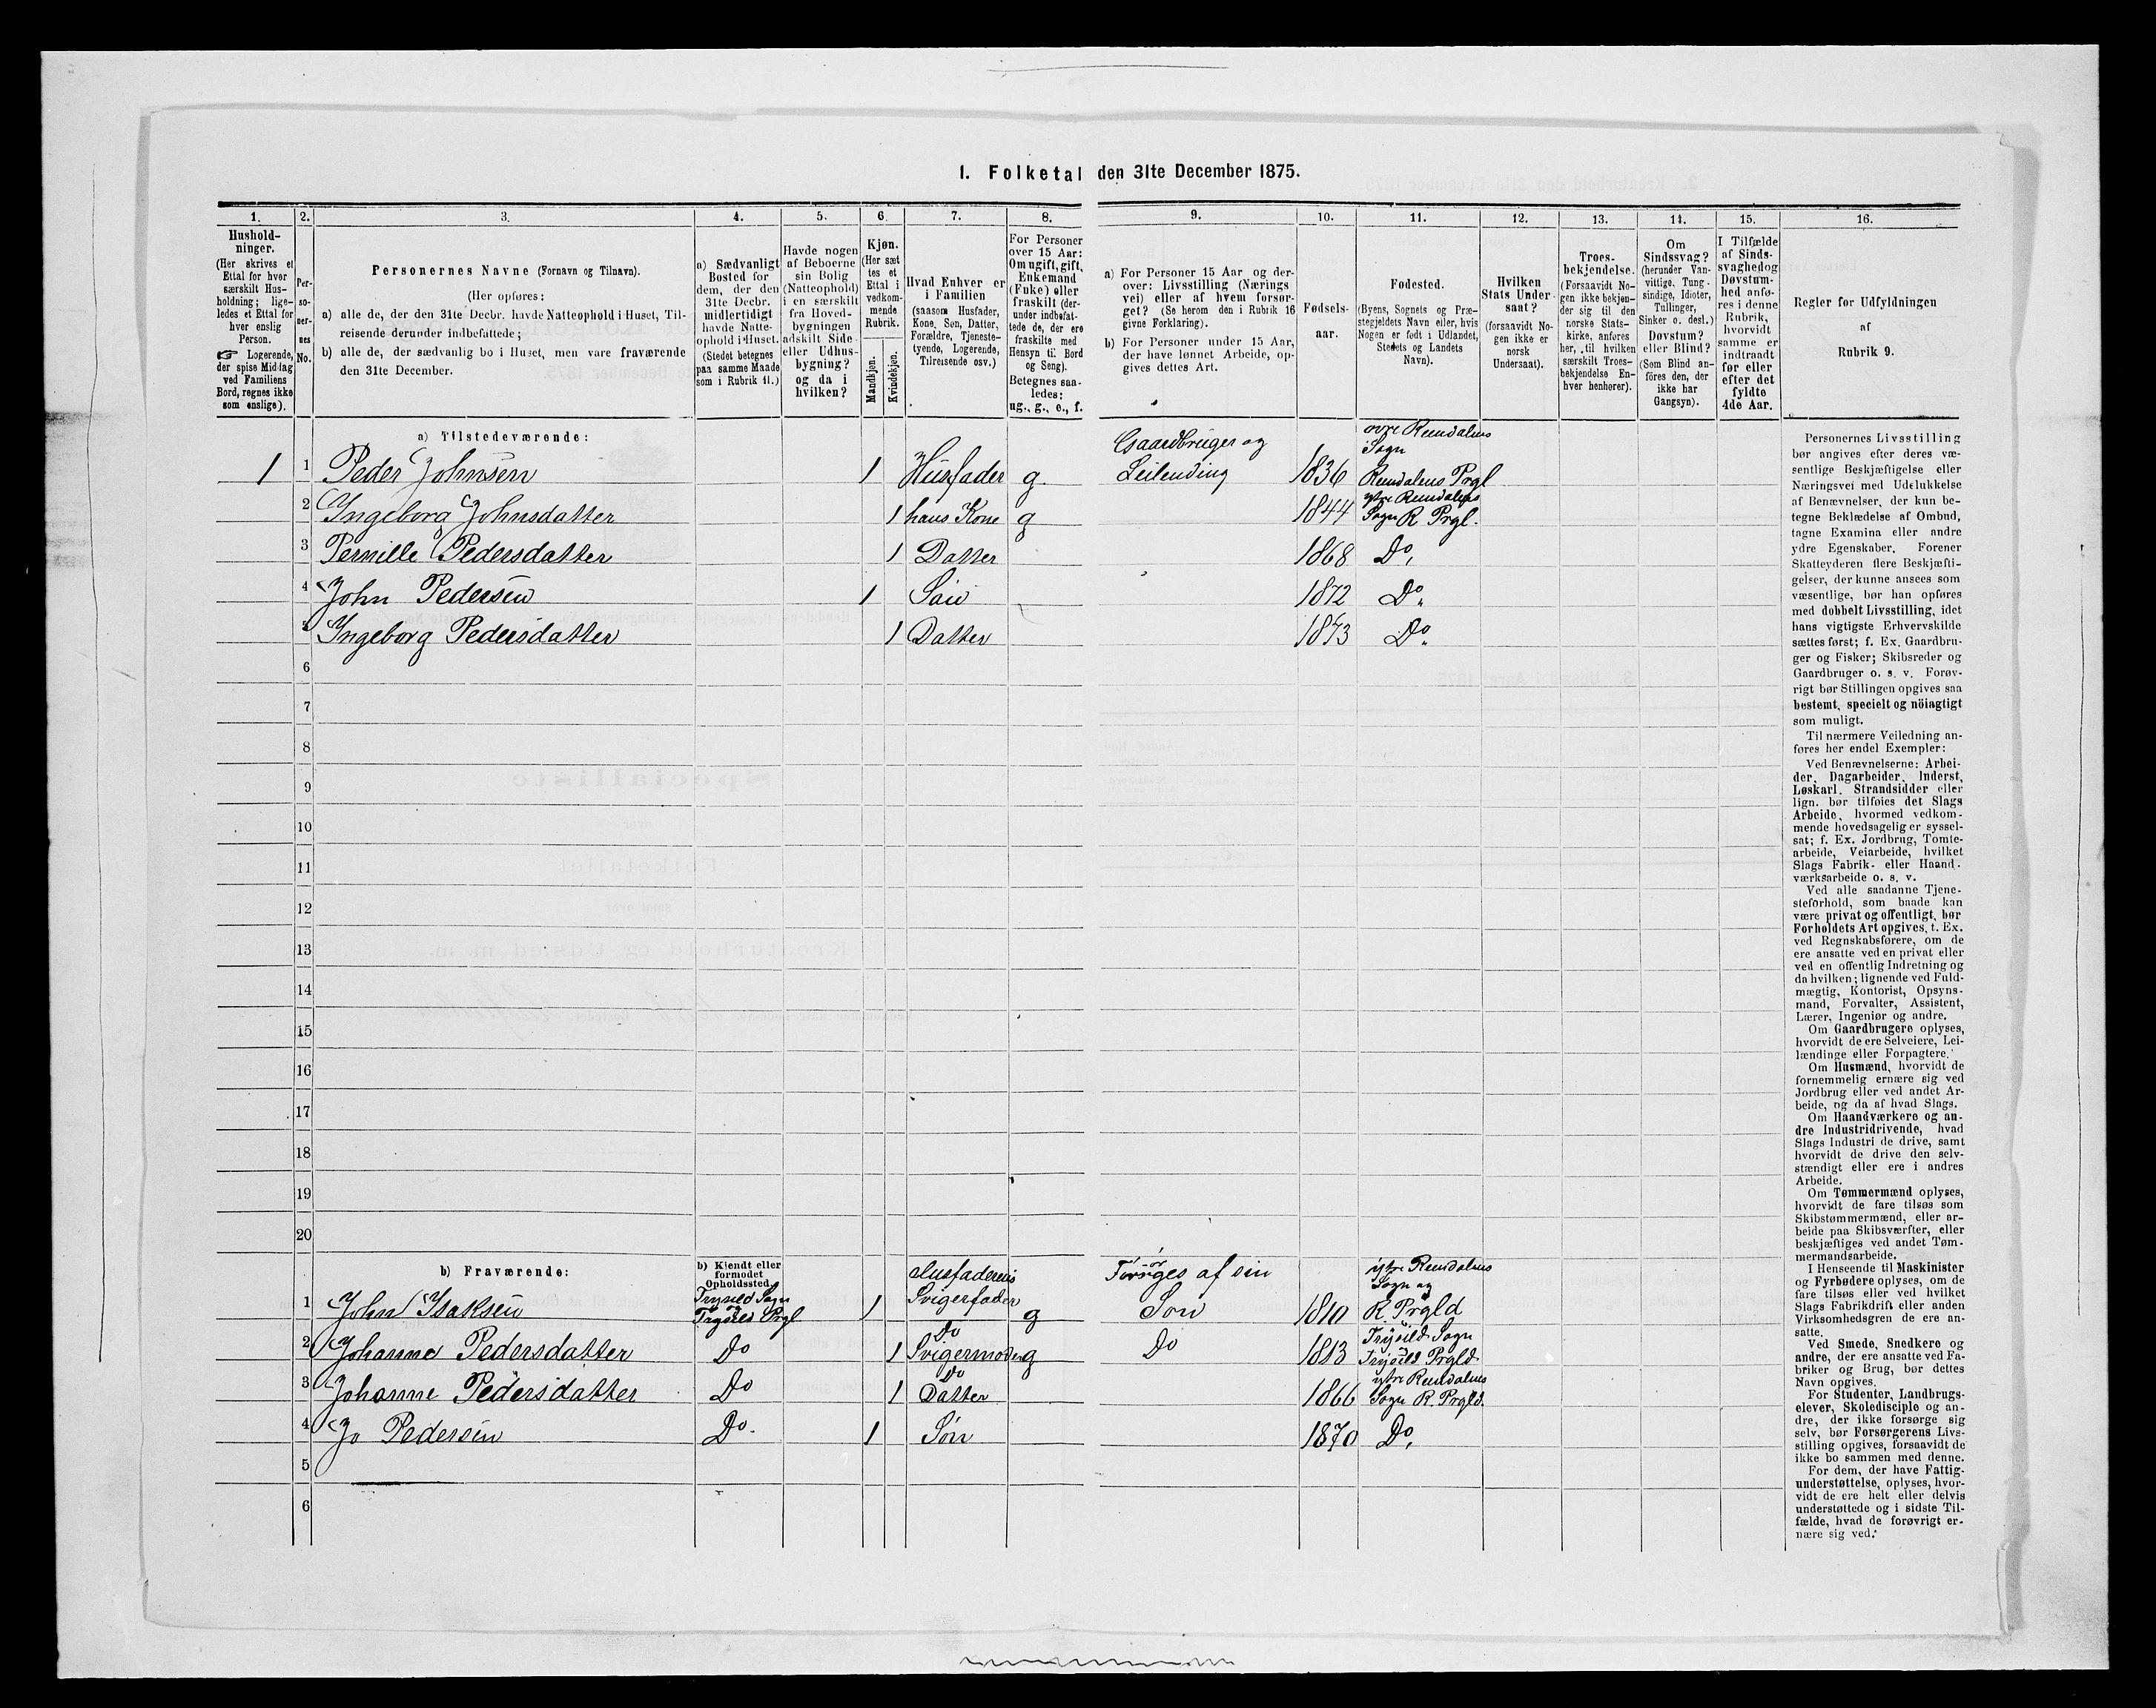 1. Folketal den 31te December 1875.
1. 2. 3. 4. 5. 6. 7. 8. 9. 10. 11. 12. 13. 14. 15. 16.
Hushold-
ninger.
(Her skrives et
Ettal for hver
særskilt Hus-
holdning; lige-
ledes et Ettal for
hver enslig
Person.
☞ Logerende,
der spise Middag
ved Familiens
Bord, regnes ikke
som enslige).
Per-
so-
ner-
nes
No.
Personernes Navne (Fornavn og Tilnavn).
(Her opføres:
a) alle de, der den 31te Decbr. havde Natteophold i Huset, Til-
reisende derunder indbefattede;
b) alle de, der sædvanlig bo i Huset, men vare fraværende
den 31te December.
a) Sædvanligt
Bosted for
dem, der den
31te Decbr.
midlertidigt
havde Natte-
ophold i Huset.
(Stedet betegnes
paa samme Maade
som i Rubrik 11.)
Havde nogen
af Beboerne
sin Bolig
(Natteophold)
i en særskilt
fra Hoved-
bygningen
adskilt Side-
eller Udhus-
bygning?
og da i
hvilken?
Kjøn.
(Her sæt
tes et
Ettal i
vedkom-
mende
Rubrik.
Mandkjøn.
Kvindekjøn.
Hvad Enhver er
i Familien
(saasom Husfader,
Kone, Søn, Datter,
Forældre, Tjeneste-
tyende, Logerende,
Tilreisende osv.)
For Personer
over 15 Aar:
Om ugift, gift,
Enkemand
(Enke) eller
fraskilt (der-
under indbefat-
tede de, der ere
fraskilte med
Hensyn til Bord
og Seng).
Betegnes saa-
ledes:
ug., g., e., f.
a) For Personer 15 Aar og der-
over: Livsstilling (Nærings
vei) eller af hvem forsør-
get? (Se herom den i Rubrik 16
givne Forklaring).
b) For Personer under 15 Aar,
der have lønnet Arbeide, op-
gives dettes Art.
Fødsels-
aar.
Fødested.
(Byens, Sognets og Præ-
stegjeldets Navn eller, hvis
Nogen er født i Udlandet,
Stedets og Landets
Navn).
Hvilken
Stats Under-
saat?
(forsaavidt No-
gen ikke er
norsk
Undersaat).
Troes-
bekjendelse.
(Forsaavidt No-
gen ikke bekjen-
der sig til den
norske Stats-
kirke, anføres
her, til hvilken
særskilt Troes-
bekjendelse En-
hver henhører).
Om
Sindssvag?
(herunder Van-
vittige, Tung-
sindige, Idioter,
Tullinger,
Sinker o. desl.)
Døvstum?
eller Blind?
(Som Blind an-
føres den, der
ikke har
Gangsyn).
I Tilfælde
af Sinds-
svaghed og
Døvstum-
hed anfø-
res i denne
Rubrik,
hvorvidt
samme er
indtraadt
før eller
efter det
fyldte
4de Aar.
Regler for Udfyldningen
af
Rubrik 9.
a) Tilstedeværende:
1 1 Peder Johnsen 1 Husfader g. Gaardbruger og Leilending 1836 øvre Rendalens Sogn Rendalens Prgl
2 Ingeborg Johnsdatter 1 hans Kone g 1844 ytre Rendalens Sogn R Prgl.
3 Pernille Pedersdatter 1 Datter 1868 Do,
4 John Pedersen 1 Søn 1872 Do
5 Ingeborg Pedersdatter 1 Datter 1873 Do
6
7
8
9
10
11
12
13
14
15
16
17
18
19
20
b) Fraværende: b) Kjendt eller
formodet
Opholdssted.
1 John Isaksen Trysild Sogn og Trysild Prgl 1 Husfaderens Svigerfader g Forsørges af sin Søn 1810 ytre Rendalens Sogn og R Prgld
2 Johanne Pedersdatter Do 1 Do Svigermoder g Do 1813 Trysild Sogn Trysild Prgld
3 Johanne Pedersdatter Do 1 Do Datter 1866 ytre Rendalens Sogn R. Prgld.
4 Jo Pedersen Do. 1 Søn 1870 Do,
5
6
Personernes Livsstilling
bør angives efter deres væ-
sentlige Beskjæftigelse eller
Næringsvei med Udelukkelse
af Benævnelser, der kun be-
tegne Beklædelse af Ombud,
tagne Examina eller andre
ydre Egenskaber. Forener
Skatteyderen flere Beskjæfti-
gelser, der kunne ansees som
væsentlige, bør han opføres
med dobbelt Livsstilling, idet
hans vigtigste Erhvervskilde
sættes først; f. Ex. Gaardbru-
ger og Fisker; Skibsreder og
Gaardbruger o. s. v. Forøv-
rigt bør Stillingen opgives saa
bestemt, specielt og nöiagtigt
som muligt.
Til nærmere Veiledning an-
føres her endel Exempler:
Ved Benævnelserne: Arbei-
der, Dagarbeider, Inderst,
Løskarl, Strandsidder eller
lign. bør tilføies det Slags
Arbeide, hvormed vedkom-
mende hovedsagelig er syssel-
sat; f. Ex. Jordbrug, Tomte-
arbeide, Veiarbeide, hvilket
Slags Fabrik- eller Haand-
værksarbeide o. s. v.
Ved alle saadanne Tjene-
steforhold, som baade kan
være privat og offentligt, bør
Forholdets Art opgives, f. Ex.
ved Regnskabsførere, om de
ere ansatte ved en privat eller
ved en offentlig Indretning og
da hvilken; lignende ved Fuld-
mægtig, Kontorist, Opsyns-
mand, Forvalter, Assistent,
Lærer, Ingeniør og andre.
Om Gaardbrugere oplyses,
hvorvidt de ere Selveiere, Lei-
lændinge eller Forpagtere.
Om Husmænd, hvorvidt de
fornemmelig ernære sig ved
Jordbrug eller ved andet Ar-
beide, og da af hvad Slags.
Om Haandværkere og an-
dre Industridrivende, hvad
Slags Industri de drive, samt
hvorvidt de drive den selv-
stændigt eller ere i andres
Arbeide.
Om Tømmermænd oplyses,
hvorvidt de fare tilsøs som
Skibstømmermænd, eller ar-
beide paa Skibsværfter, eller
beskjæftiges ved andet Tøm-
mermandsarbeide.
I Henseende til Maskinister
og Fyrbødere oplyses, om de
fare tilsøs eller ved hvilket
Slags Fabrikdrift eller anden
Virksomhedsgren de ere an-
satte.
Ved Smede, Snedkere og
andre, der ere ansatte ved Fa-
briker og Brug, bør dettes
Navn opgives.
For Studenter, Landbrugs-
elever, Skoledisciple og an-
dre, der ikke forsørge sig
selv, bør Forsørgerens Livs-
stilling opgives, forsaavidt de
ikke bo sammen med denne.
For dem, der have Fattig-
understøttelse, oplyses, hvor-
vidt de ere helt eller delvis
understøttede og i sidste Til-
fælde, hvad de forøvrigt er-
nære sig ved.